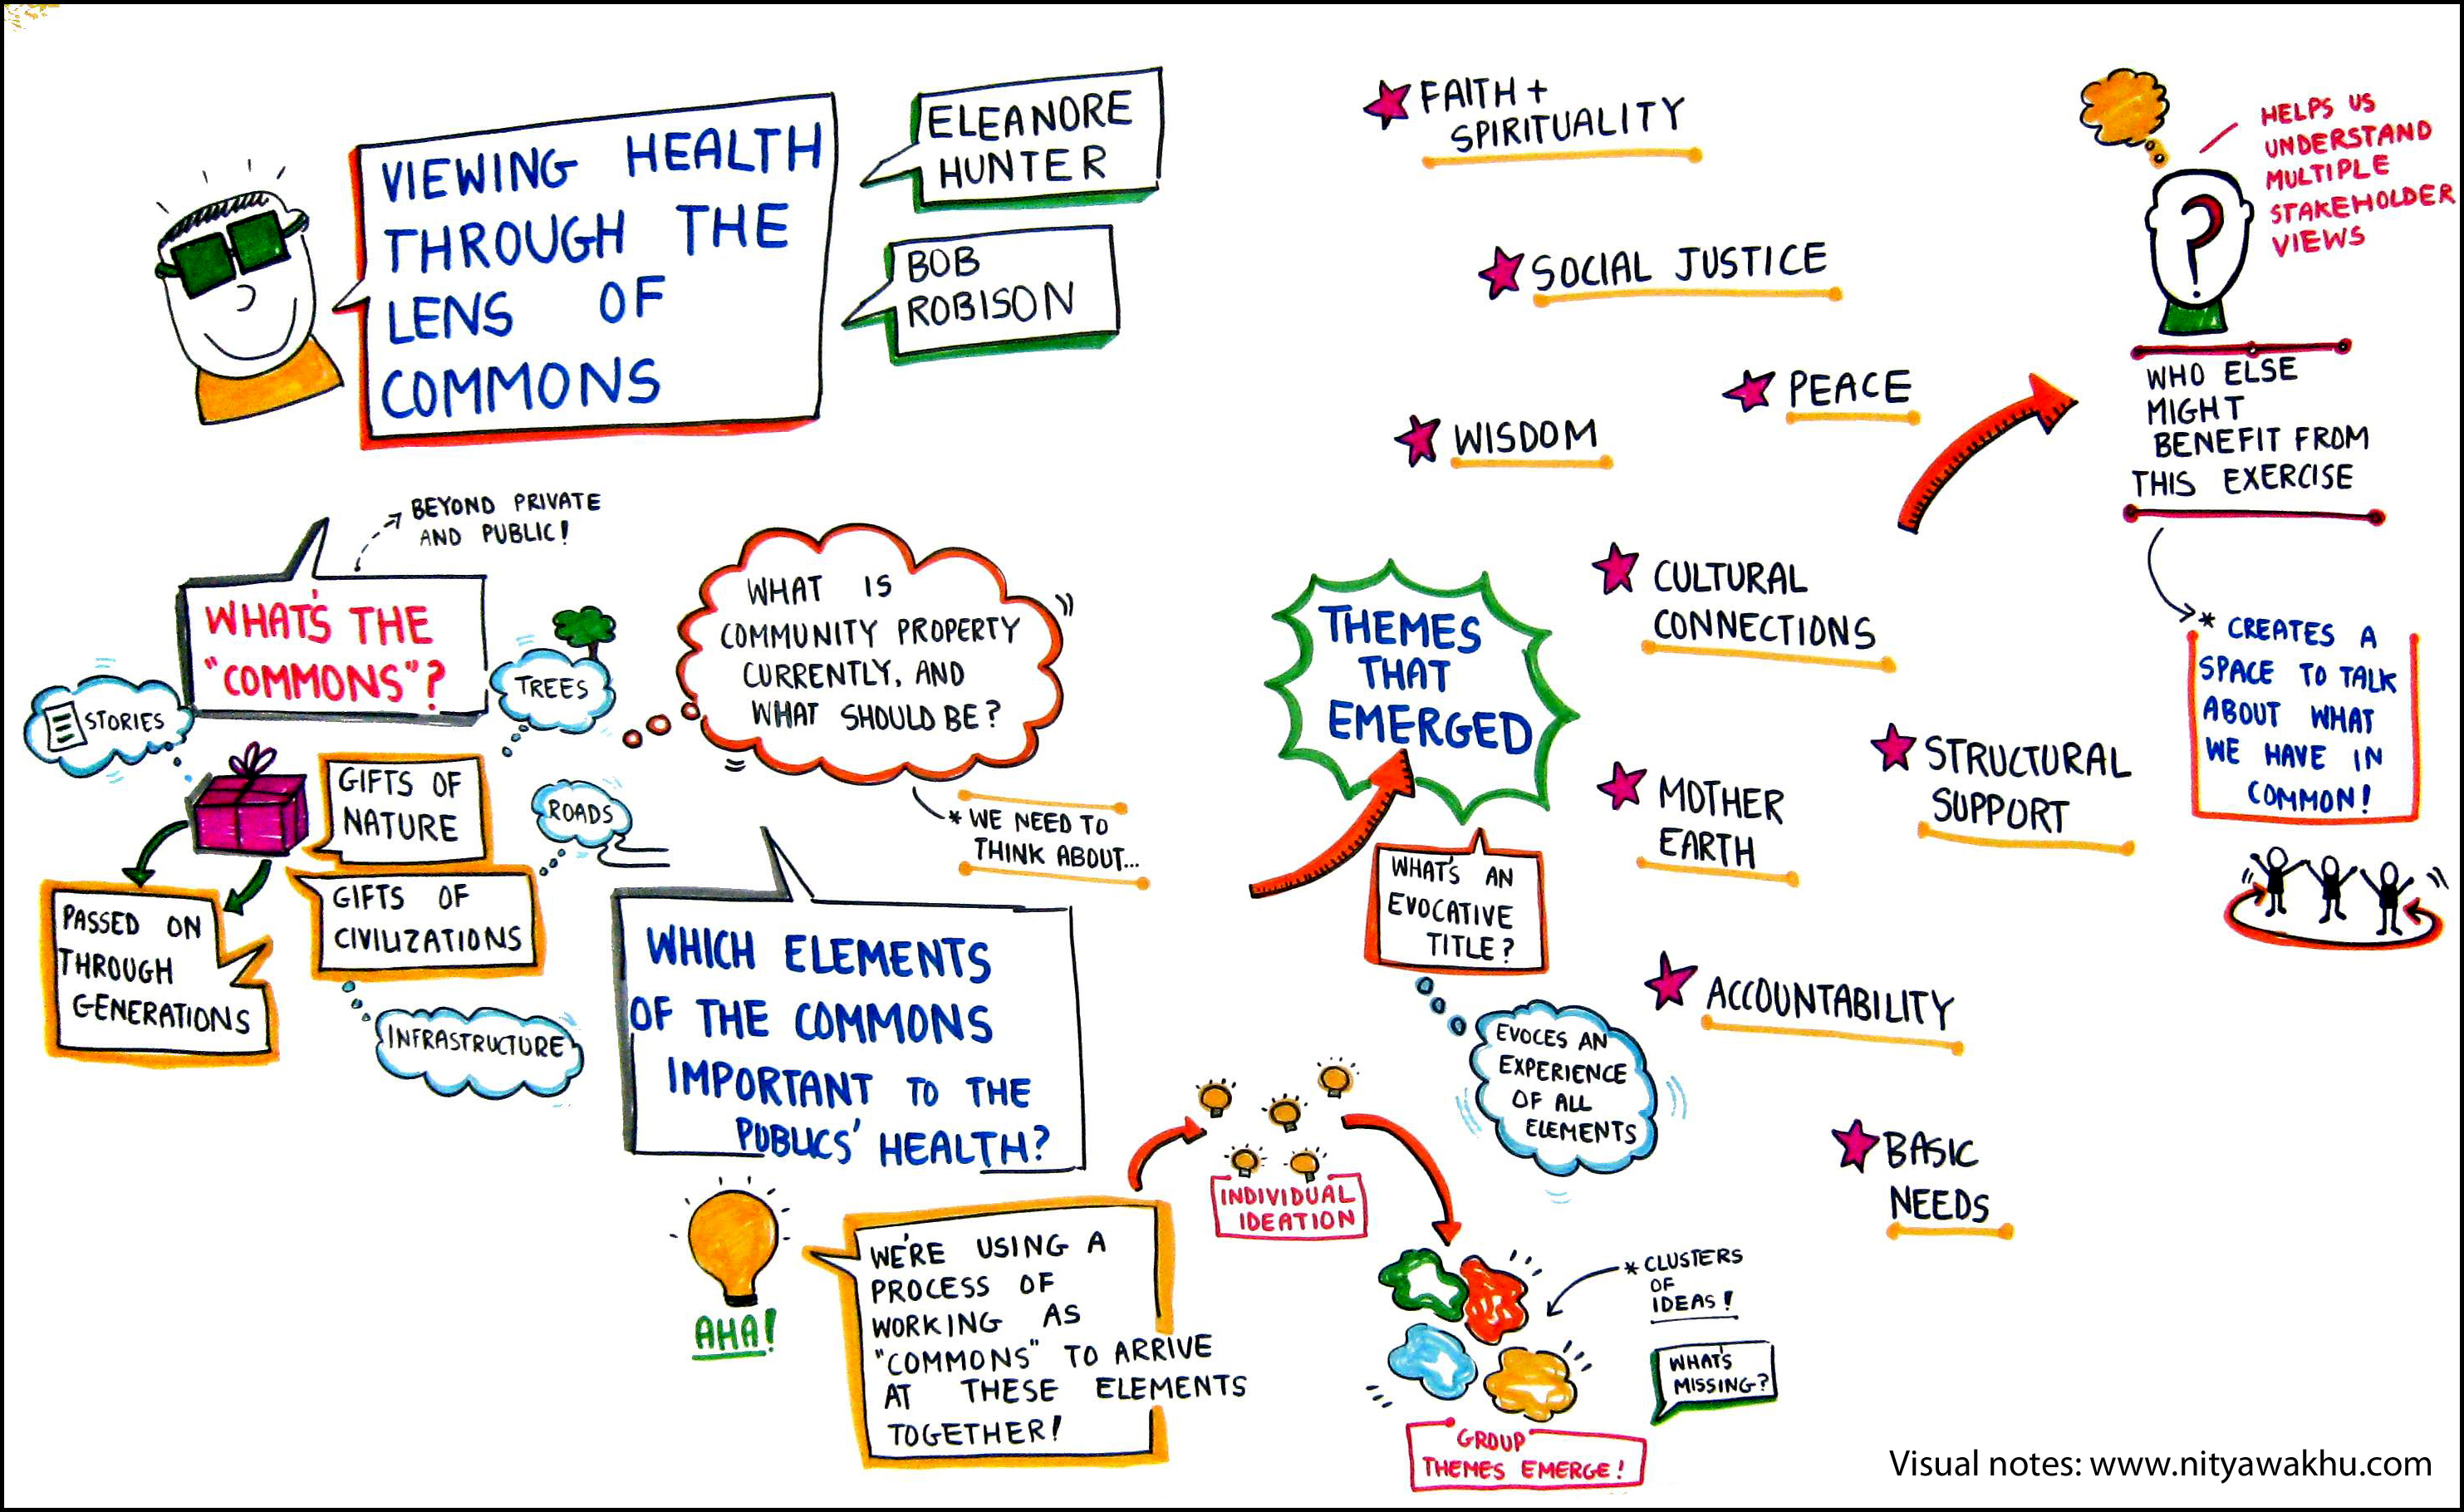 VIEWING HEALTH
THROUGH THE
LENS OF
COMMONS
ELEANORE
HUNTER
BOB
ROBISON
BEYOND PRIVATE
AND PUBLIC!
WHAT'S THE
"COMMONS"?
STORIES
TREES
GIFTS OF
NATURE
ROADS
GIFTS OF
CIVILIZATIONS
PASSED ON
THROUGH
GENERATIONS
INFRASTRUCTURE
WHAT IS
COMMUNITY PROPERTY
CURRENTLY, AND
WHAT SHOULD BE?
* WE NEED TO
THINK ABOUT...
WHICH ELEMENTS
OF THE COMMONS
IMPORTANT TO THE
PUBLICS' HEALTH?
AHA!
WE'RE USING A
PROCESS OF
WORKING AS
"COMMONS" TO ARRIVE
AT THESE ELEMENTS
TOGETHER!
INDIVIDUAL
IDEATION
* CLUSTERS
OF
IDEAS!
WHAT'S
MISSING?
GROUP
THEMES EMERGE!
THEMES
THAT
EMERGED
WHAT'S AN
EVOCATIVE
TITLE?
EVOCES AN
EXPERIENCE
OF ALL
ELEMENTS
FAITH +
SPIRITUALITY
SOCIAL JUSTICE
PEACE
WISDOM
CULTURAL
CONNECTIONS
STRUCTURAL
SUPPORT
MOTHER
EARTH
ACCOUNTABILITY
BASIC
NEEDS
HELPS US
UNDERSTAND
MULTIPLE
STAKEHOLDER
VIEWS
?
WHO ELSE
MIGHT
BENEFIT FROM
THIS EXERCISE
* CREATES A
SPACE TO TALK
ABOUT WHAT
WE HAVE IN
COMMON!
Visual notes: www.nityawakhu.com